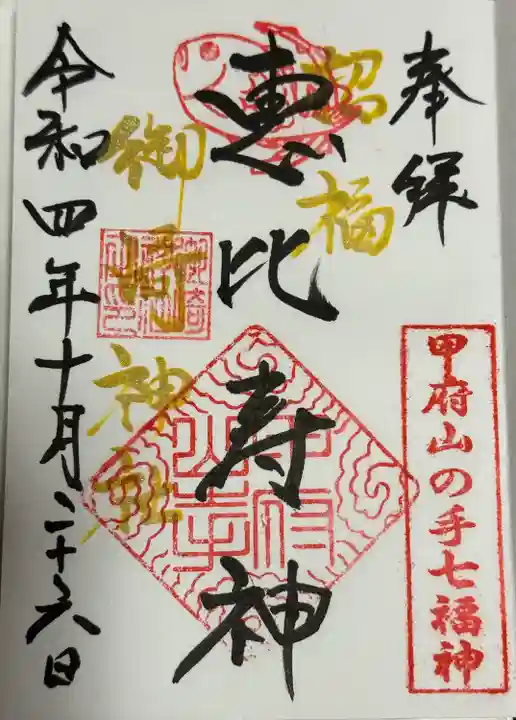 奉拝
甲府山の手七福神
招福
恵比寿神
甲府山手
御崎神社
令和四年十月二十六日